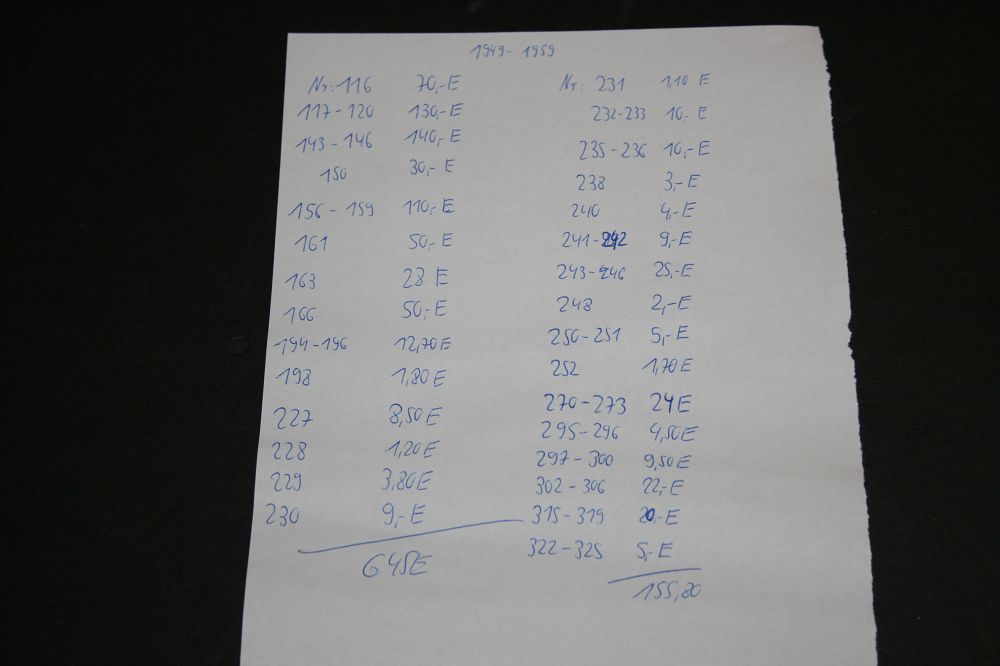 1949 - 1959
Nr.: 116 70,- E
117 - 120 130,- E
143 - 146 140,- E
150 30,- E
156 - 159 110,- E
161 50,- E
163 28 E
166 50,- E
194 - 196 12,70 E
198 1,80 E
227 8,50 E
228 1,20 E
229 3,80 E
230 9,- E
645 E
Nr: 231 1,10 E
232-233 10,- E
235 - 236 10,- E
238 3,- E
240 4,- E
241 - 242 9,- E
243 - 246 25,- E
248 2,- E
250 - 251 5,- E
252 1,70 E
270 - 273 24 E
295 - 296 4,50 E
297 - 300 9,50 E
302 - 306 22,- E
315 - 319 20,- E
322 - 325 5,- E
155,80